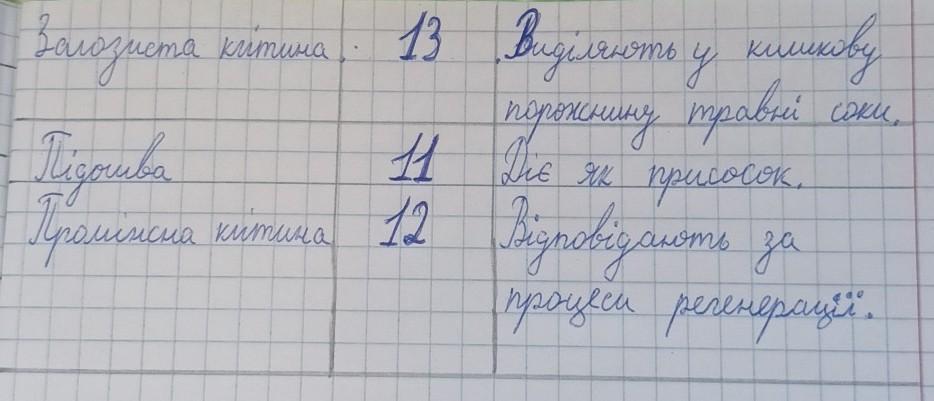 Залозиста клітина. 13 Виділяють у кишкову
порожнину травні соки.
Підошва 11 Діє як присосок.
Проміжна клітина 12 Відповідають за
процеси регенерації.